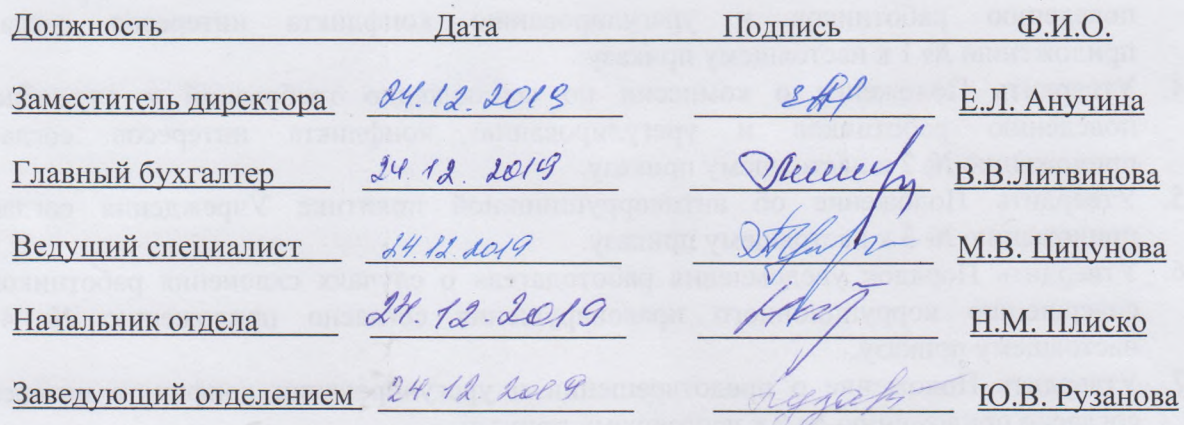 Должность Дата Подпись Ф.И.О.
Заместитель директора 24.12.2019 Е.Л. Анучина
Главный бухгалтер 24.12.2019 В.В.Литвинова
Ведущий специалист 24.12.2019 М.В. Цицунова
Начальник отдела 24.12.2019 Н.М. Плиско
Заведующий отделением 24.12.2019 Ю.В. Рузанова